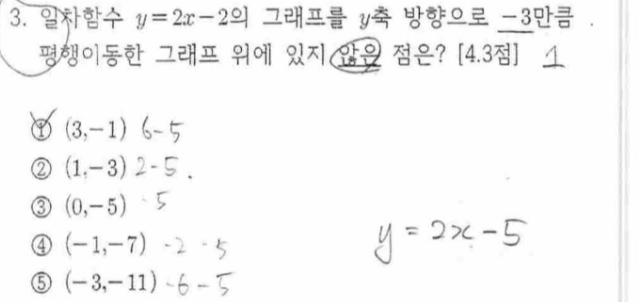 3. 일차함수 y=2x-2의 그래프를 y축 방향으로 -3만큼
평행이동한 그래프 위에 있지 않은 점은? [4.3점] 1
① (3,-1) 6-5
② (1,-3) 2-5.
③ (0,-5) -5
④ (-1,-7) -2-5
⑤ (-3,-11) -6-5
y=2x-5